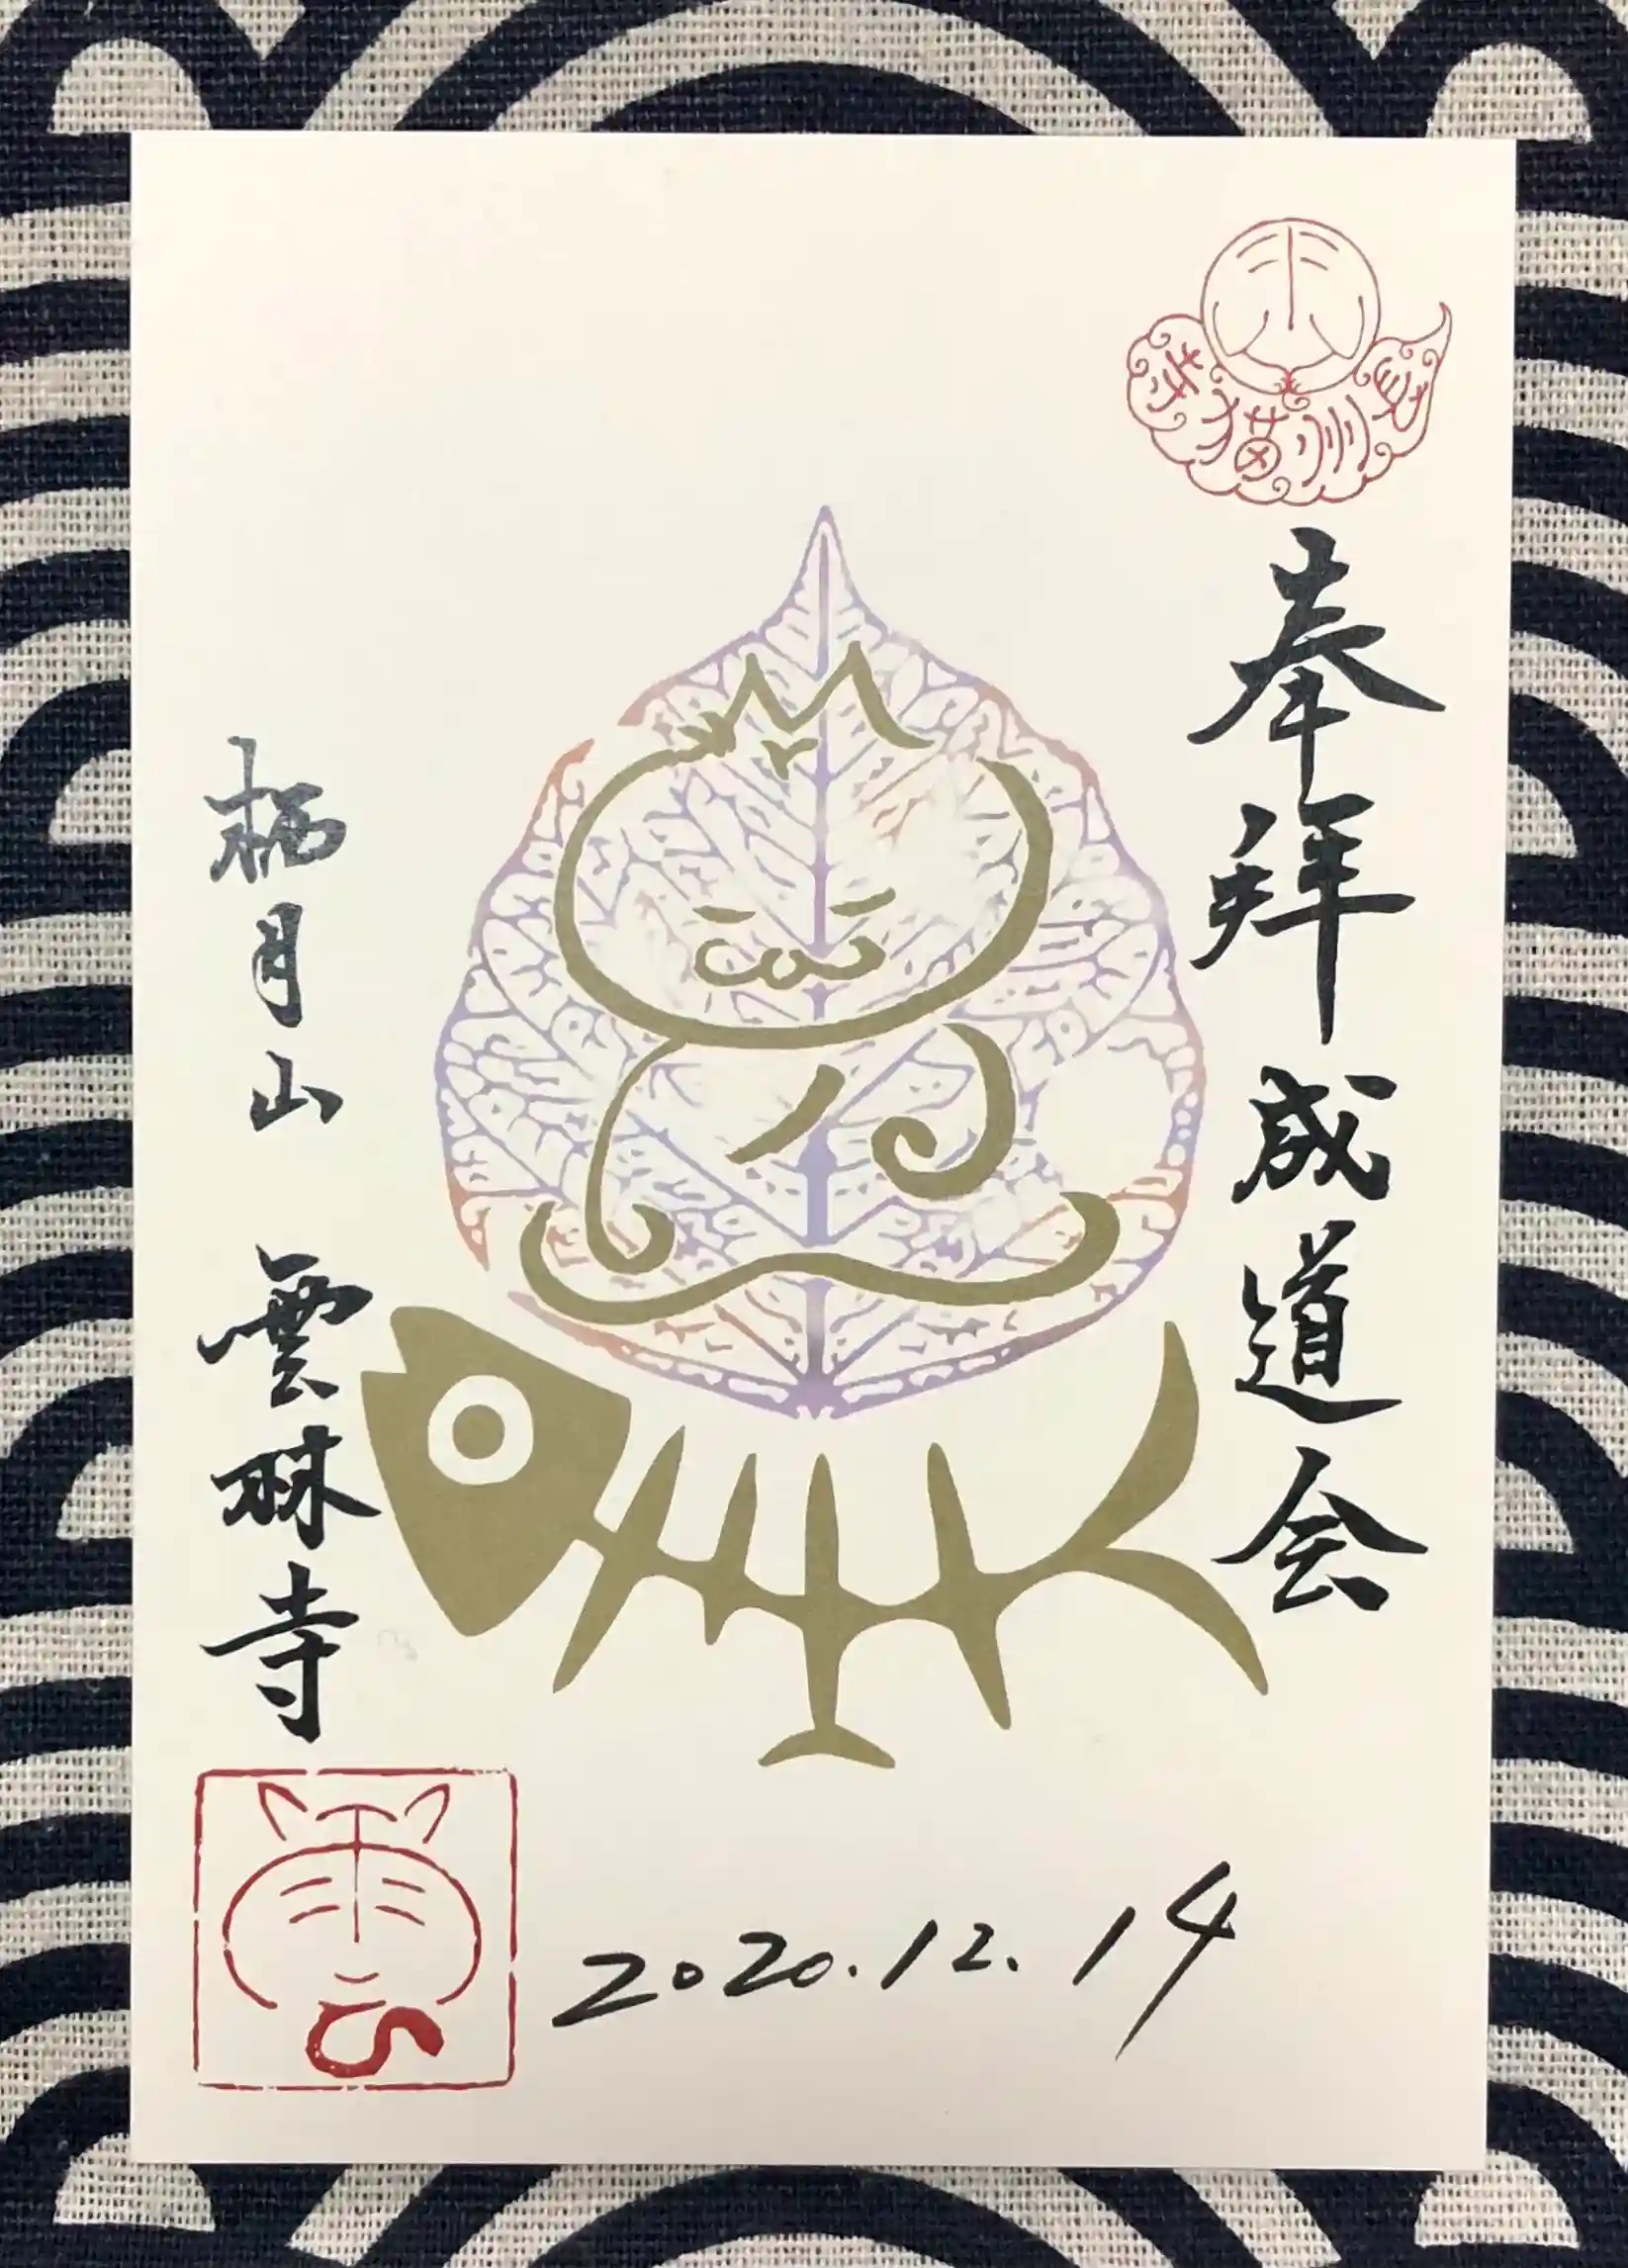 長州猫寺
奉拝 成道会
栖月山 雲林寺
2020.12.14